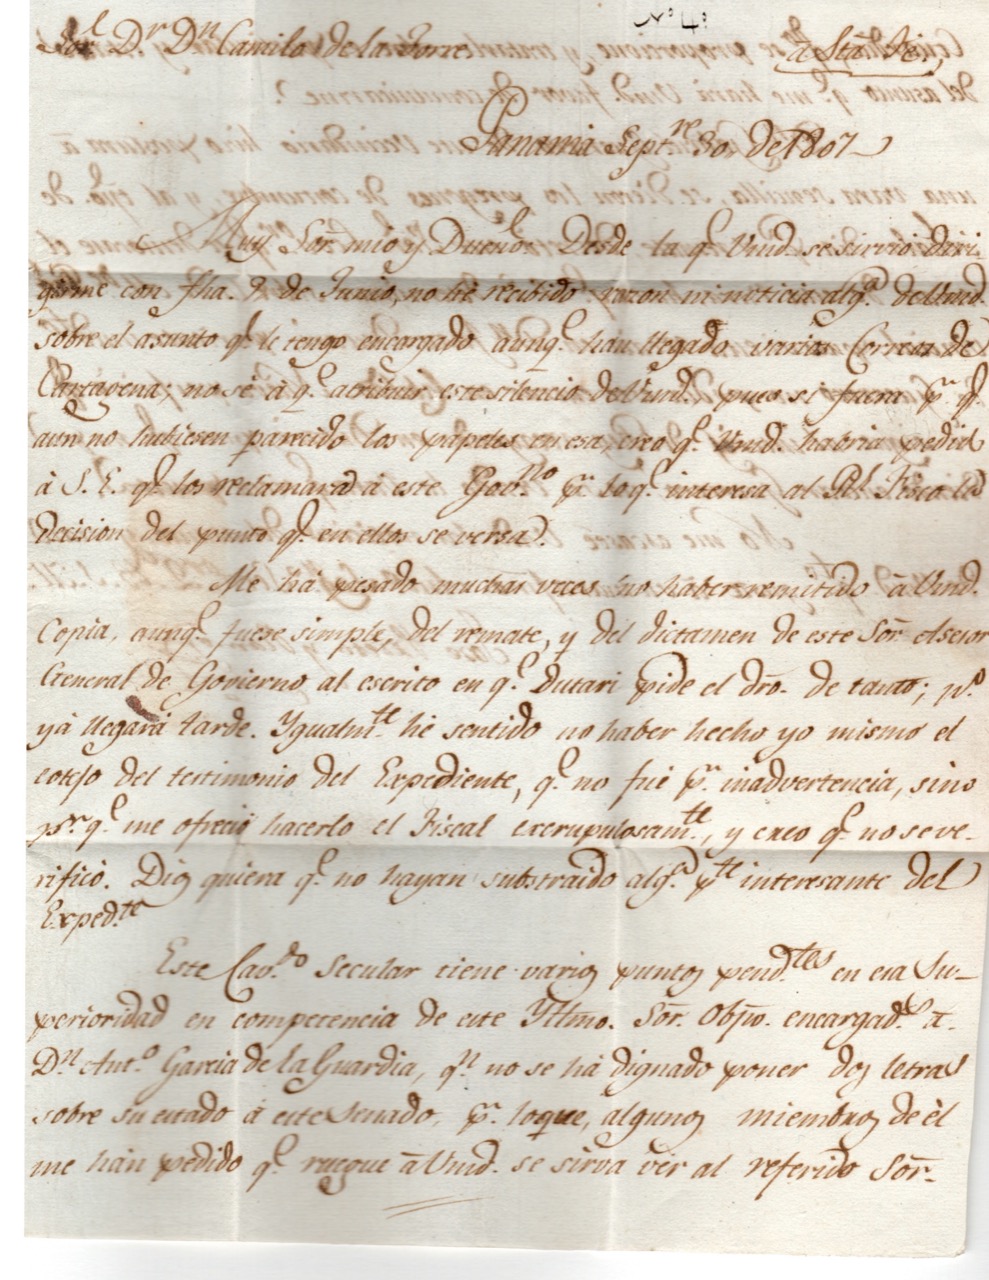 N.º 4.º
Sor. Dr. Dn. Camilo de las Torres a Sta. Fé.
Panamá Septre. 30. de 1807
Muy Sor. mio y Dueño. Desde la q.e Vmd. se sirvió diri-
girme con fha. 9 de Junio, no hé recibido razon ni noticia alg.a de Vmd.
sobre el asunto q.e le tengo encargado aunq.e hán llegado varios Correos de
Cartagena; no sé á q.e atribuir este silencio de Vmd. pues si fuera p.r q.e
aun no hubiesen parecido los papeles en esa, creo q.e Vmd. habria pedido
á S. E. q.e los reclamara á este Gov.no p.r lo q.e interesa al Rl. Fisco la
decision del punto q.e en ellos se versa.
Me há pesado muchas veces no haber remitido á Vmd.
Copia, aunq.e fuese simple, del remate, y del dictamen de este Sor. Asesor
General de Govierno al escrito en q.e Dutari pide el dro. de tanto; p.o
yá llegará tarde. Ygualm.te hé sentido no haber hecho yo mismo el
cotejo del testimonio del Expediente, q.e no fué p.r inadvertencia, sino
p.r q.e me ofreció hacerlo el Fiscal escrupulosam.te, y creo q.e no se ve-
rificó. Dios quiera q.e no hayan substraido alg.a p.te interesante del
Exped.te
Este Cav.do Secular tiene varios puntos pend.tes en esa Su-
perioridad en competencia de este Yltmo. Sor. Obpo. encargados á
Dn. Ant.o Garcia de la Guardia, q.n no se há dignado poner dos letras
sobre su estado á este Senado, p.r lo que, algunos miembros de él
me hán pedido q.e ruegue á Vmd. se sirva vér al referido Sor.